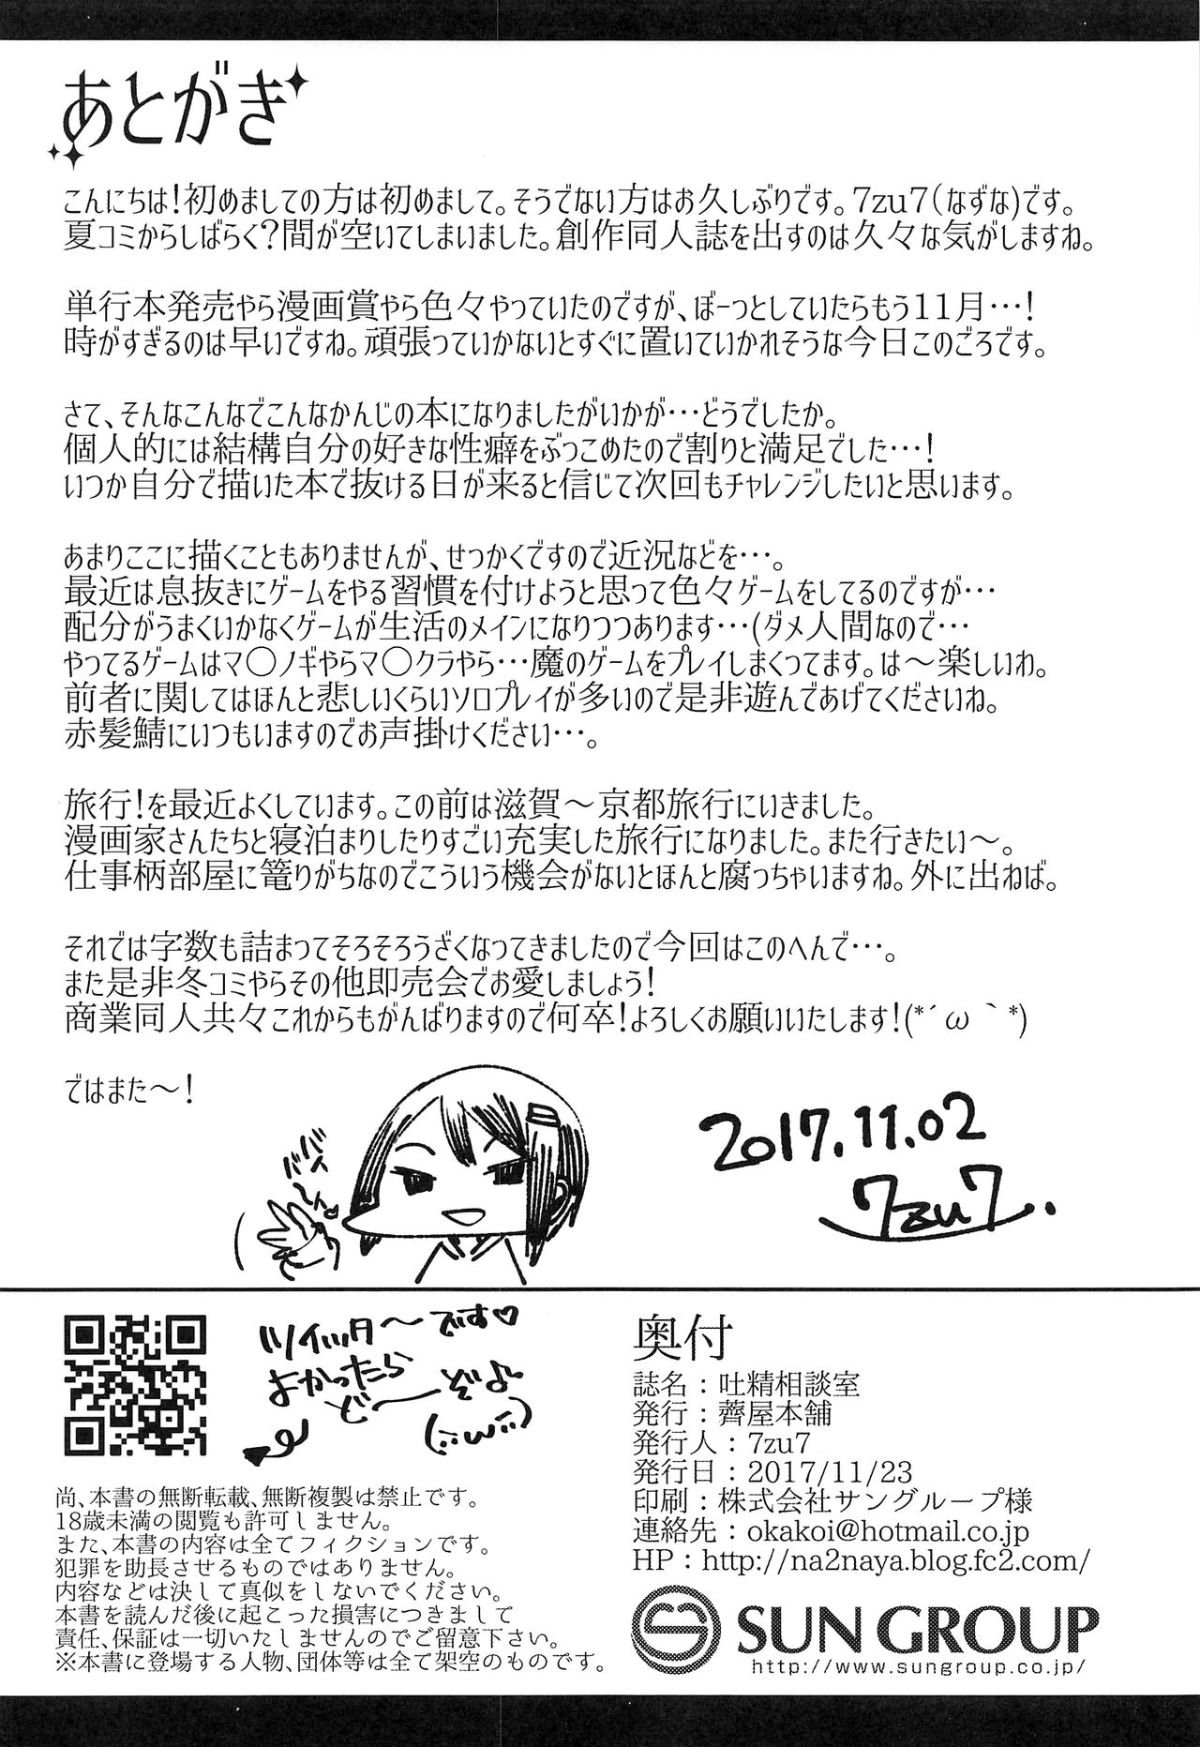 あとがき
こんにちは!初めましての方は初めまして。そうでない方はお久しぶりです。7zu7(なずな)です。
夏コミからしばらく?間が空いてしまいました。創作同人誌を出すのは久々な気がしますね。
単行本発売やら漫画賞やら色々やっていたのですが、ぼーっとしていたらもう11月…!
時がすぎるのは早いですね。頑張っていかないとすぐに置いていかれそうな今日このごろです。
さて、そんなこんなでこんなかんじの本になりましたがいかが…どうでしたか。
個人的には結構自分の好きな性癖をぶっこめたので割りと満足でした…!
いつか自分で描いた本で抜ける日が来ると信じて次回もチャレンジしたいと思います。
あまりここに描くこともありませんが、せっかくですので近況などを…。
最近は息抜きにゲームをやる習慣を付けようと思って色々ゲームをしてるのですが…
配分がうまくいかなくゲームが生活のメインになりつつあります…(ダメ人間なので…
やってるゲームはマ〇ノギやらマ〇クラやら…魔のゲームをプレイしまくってます。は〜楽しいわ。
前者に関してはほんと悲しいくらいソロプレイが多いので是非遊んであげてくださいね。
赤髪鯖にいつもいますのでお声掛けください…。
旅行!を最近よくしています。この前は滋賀〜京都旅行にいきました。
漫画家さんたちと寝泊まりしたりすごい充実した旅行になりました。また行きたい〜。
仕事柄部屋に篭りがちなのでこういう機会がないとほんと腐っちゃいますね。外に出ねば。
それでは字数も詰まってそろそろうざくなってきましたので今回はこのへんで…。
また是非冬コミやらその他即売会でお愛しましょう!
商業同人共々これからもがんばりますので何卒!よろしくお願いいたします!(*´ω｀*)
ではまた〜!
バイバーイ
2017.11.02
7zu7..
ツイッタ〜です♡
よかったら
ど〜ぞ♪
(:;ω;:)
奥付
誌名：吐精相談室
発行：薺屋本舗
発行人：7zu7
発行日：2017/11/23
印刷：株式会社サングループ様
連絡先：okakoi@hotmail.co.jp
HP：http://na2naya.blog.fc2.com/
SUN GROUP
http://www.sungroup.co.jp/
尚、本書の無断転載、無断複製は禁止です。
18歳未満の閲覧も許可しません。
また、本書の内容は全てフィクションです。
犯罪を助長させるものではありません。
内容などは決して真似をしないでください。
本書を読んだ後に起こった損害につきまして
責任、保証は一切いたしませんのでご留意下さい。
※本書に登場する人物、団体等は全て架空のものです。